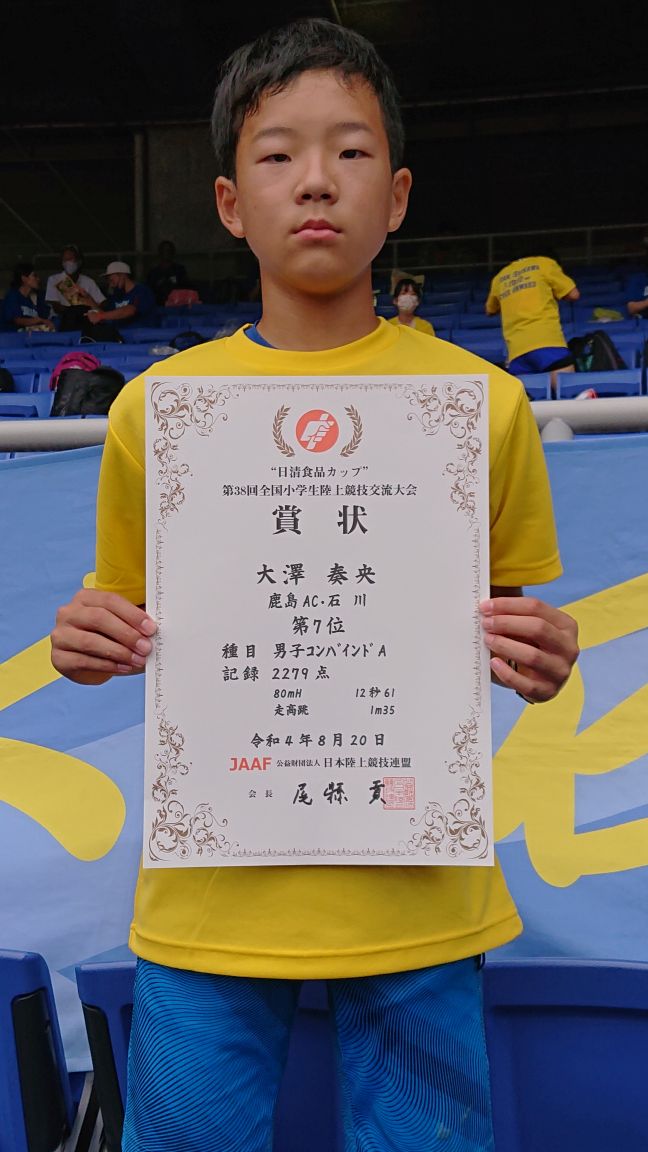 “日清食品カップ”
第38回全国小学生陸上競技交流大会
賞 状
大澤 奏央
鹿島AC・石 川
第7位
種目 男子コンバインドA
記録 2279点
80mH 12秒61
走高跳 1m35
令和4年8月20日
JAAF 公益財団法人 日本陸上競技連盟
会 長 尾 縣 貢